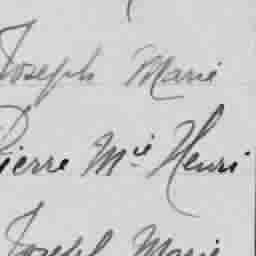 Joseph Marie
Pierre Mie Henri
Joseph Marie